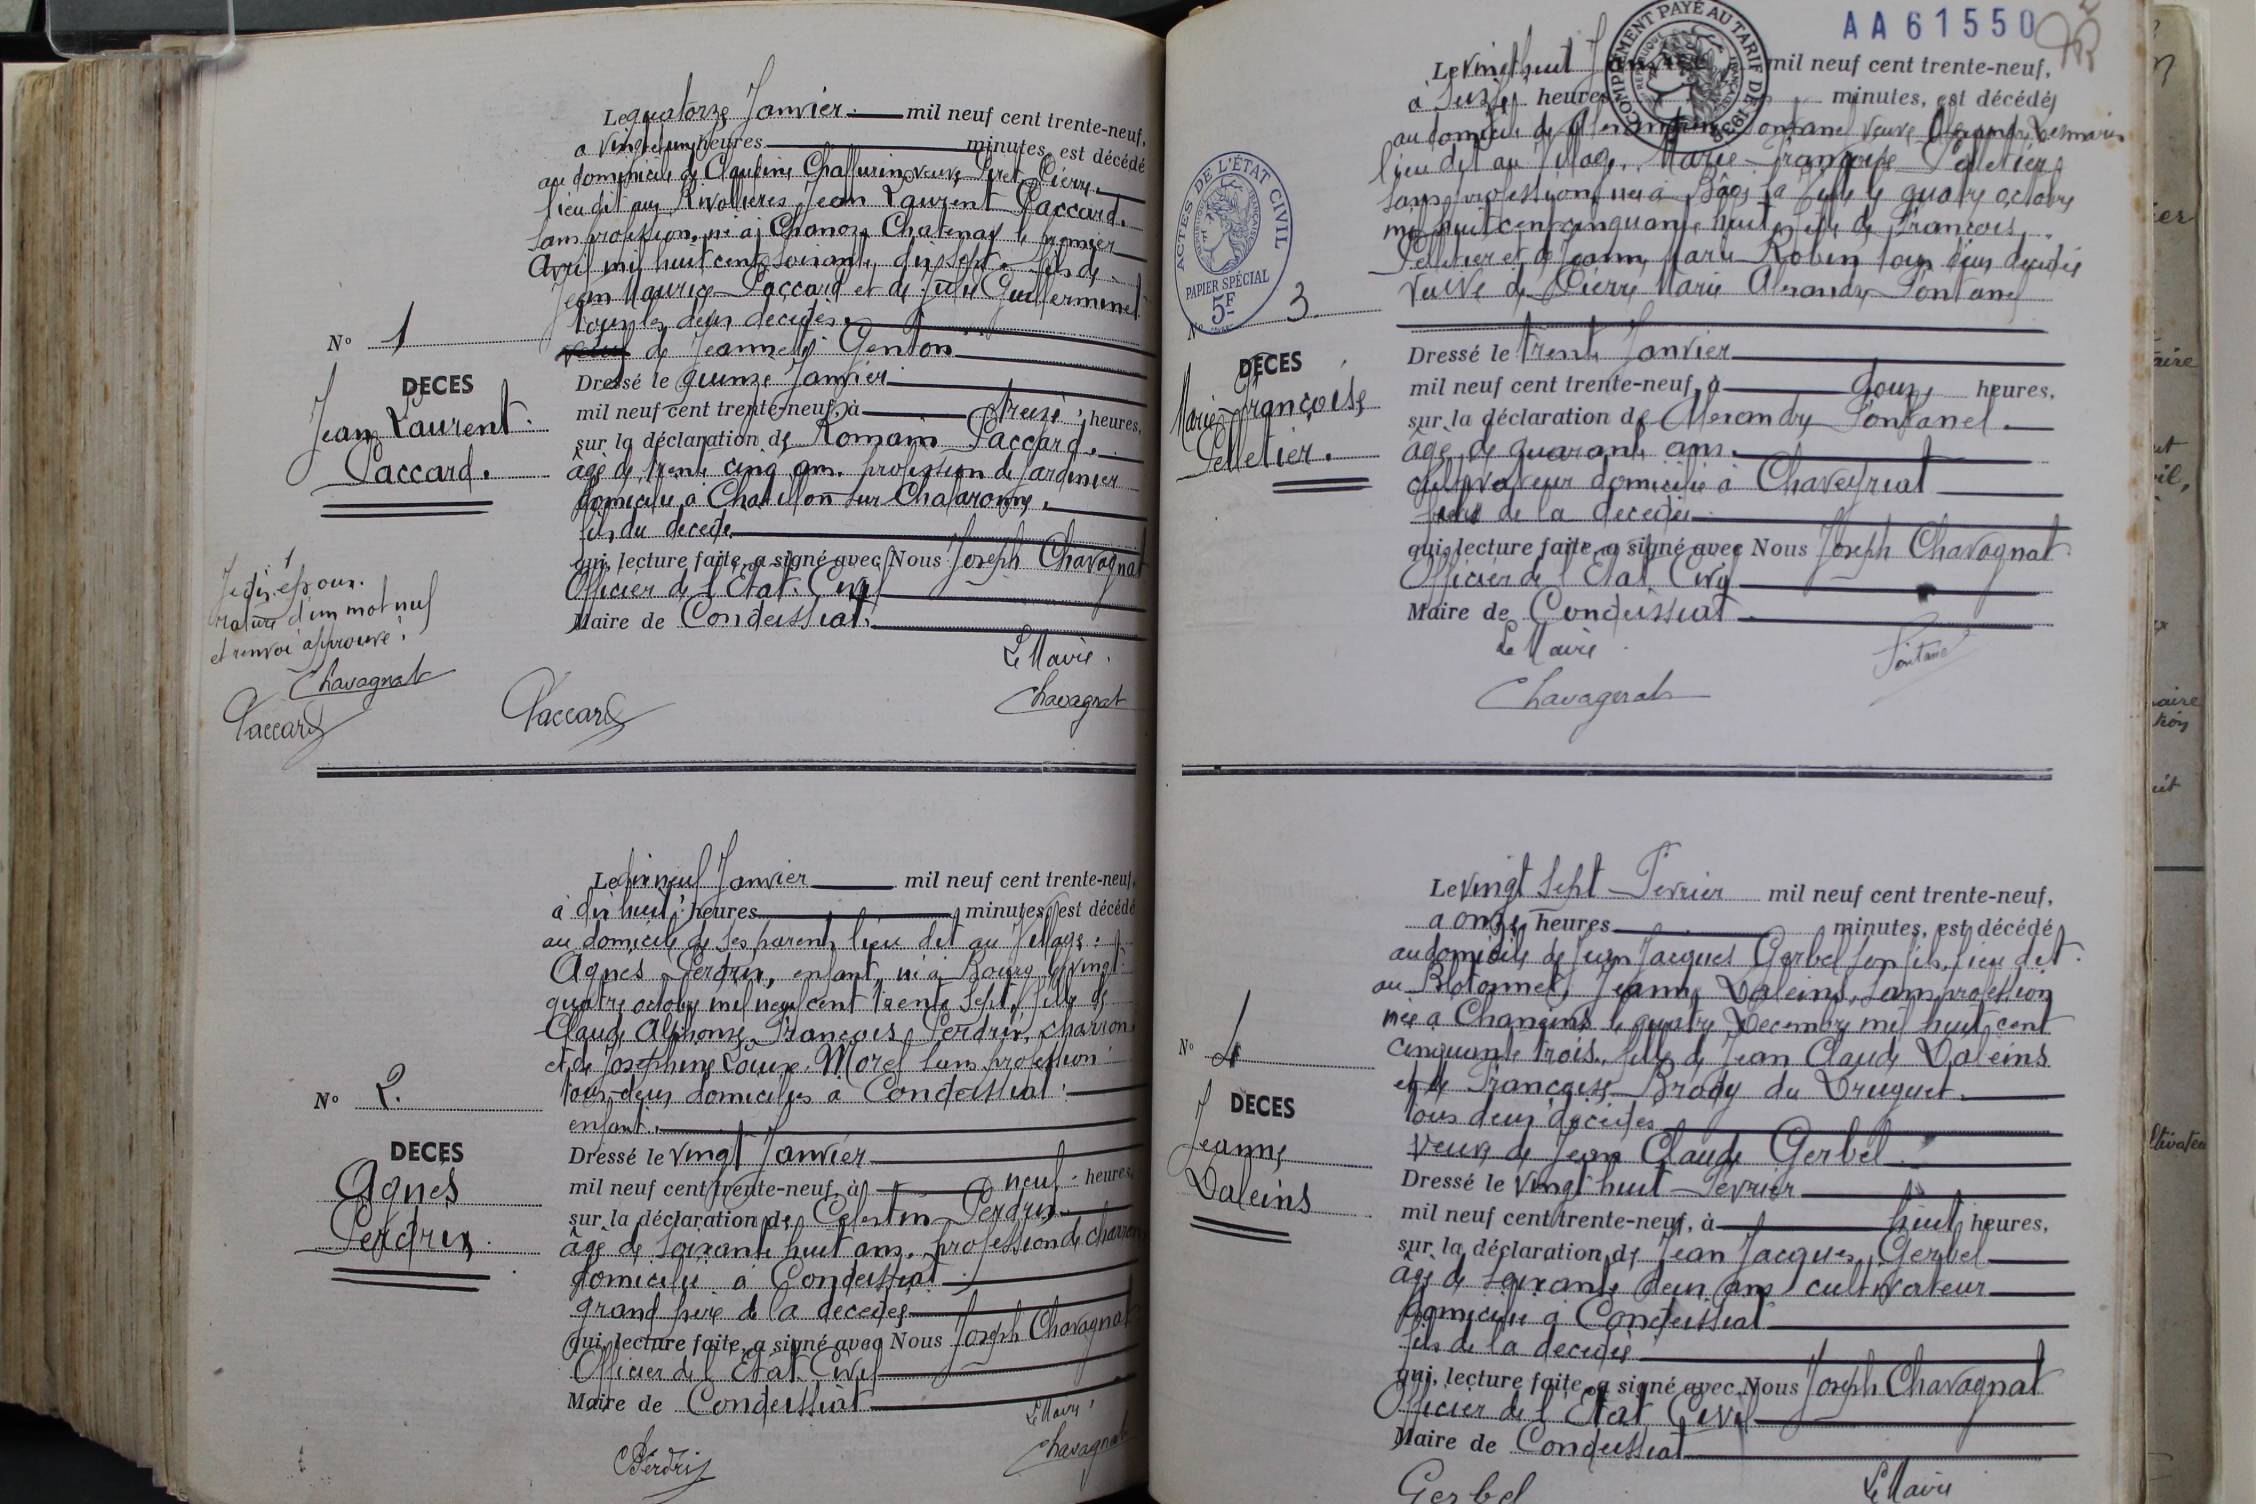 Le quatorze Janvier mil neuf cent trente-neuf,
à vingt et une heures minutes, est décédé
au domicile de Claudine Chaffurin veuve Piret Pierre
lieu dit aux Rivollières Jean Laurent Paccard.
sans profession, né à Chanoz Chatenay le premier
Avril mil huit cent soixante dix sept. fils de
Jean Maurice Paccard et de Julie Guillerminet
tous les deux décédés.
de Jeanne Genton
Nº 1
DECES
Jean Laurent
Paccard.
Dressé le quinze Janvier
mil neuf cent trente-neuf, à treize heures,
sur la déclaration de Romain Paccard.
âgé de trente cinq ans. profession de jardinier
domicilié à Chatillon sur Chalaronne.
fils du décédé
qui, lecture faite, a signé avec Nous Joseph Chavagnat
Officier de l'Etat-Civil
Maire de Condeissiat.
1
Je dis époux.
rature d'un mot nul
et renvoi approuvé.
Chavagnat
Paccard
Paccard
Le Maire.
Chavagnat
Le dix neuf Janvier mil neuf cent trente-neuf,
à dix huit heures minutes, est décédé
au domicile de ses parents lieu dit au Village.
Agnès Perdrix, enfant, né à Bourg le vingt
quatre octobre mil neuf cent trente sept, fille de
Claude Alphonse François Perdrix, charron
et de Joséphine Louise Morel sans profession
tous deux domiciliés à Condeissiat.
enfant.
Nº 2.
DECES
Agnès
Perdrix
Dressé le vingt Janvier
mil neuf cent trente-neuf, à neuf heures,
sur la déclaration de Célestin Perdrix
âgé de soixante huit ans. profession de charron
domicilié à Condeissiat
grand père de la décédée
qui, lecture faite, a signé avec Nous Joseph Chavagnat
Officier de l'Etat-Civil
Maire de Condeissiat
Le Maire,
Chavagnat
C Perdrix
AA61550
COMPLEMENT PAYÉ AU TARIF DE 1938
Le vingt huit Janvier mil neuf cent trente-neuf,
à seize heures minutes, est décédé
au domicile de Fontanel veuve Desmaris
lieu dit au Village, Marie Françoise Pelletier
sans profession, née à Bâgé la Ville le quatre octobre
mil huit cent cinquante huit, fille de François
Pelletier et de Jeanne Marie Robin tous deux décédés
veuve de Pierre Marie Alexandre Fontanel
ACTES DE L'ÉTAT CIVIL
RÉPUBLIQUE FRANÇAISE
PAPIER SPÉCIAL
5F
Nº 3.
DECES
Marie Françoise
Pelletier.
Dressé le trente Janvier
mil neuf cent trente-neuf, à douze heures,
sur la déclaration de Alexandre Fontanel.
âgé de quarante ans.
cultivateur domicilié à Chaveyriat
de la décédée
qui, lecture faite, a signé avec Nous Joseph Chavagnat
Officier de l'Etat Civil
Maire de Condeissiat
Le Maire
Chavagnat
Fontanel
Le vingt sept Février mil neuf cent trente-neuf,
à onze heures minutes, est décédé
au domicile de Jean Jacques Gerbel son fils, lieu dit
au Blotonnet, Jeanne Daleins, sans profession
née à Chaneins le quatre Décembre mil huit cent
cinquante trois. fille de Jean Claude Daleins
et de Françoise Brady du Druguet.
tous deux décédés
veuve de Jean Claude Gerbel
Nº 4
DECES
Jeanne
Daleins
Dressé le vingt huit Février
mil neuf cent trente-neuf, à huit heures,
sur la déclaration de Jean Jacques Gerbel
âgé de soixante deux ans cultivateur
domicilié à Condeissiat
fils de la décédée
qui, lecture faite, a signé avec Nous Joseph Chavagnat
Officier de l'Etat Civil
Maire de Condeissiat
Gerbel
Le Maire